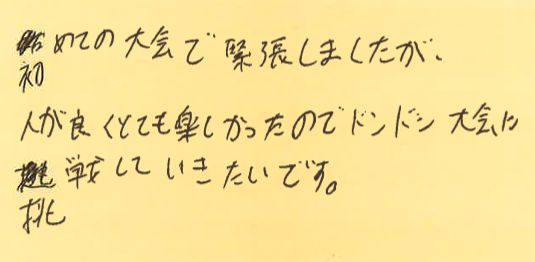 初めての大会で緊張しましたが、
人が良くとても楽しかったのでドンドン大会に
挑戦していきたいです。